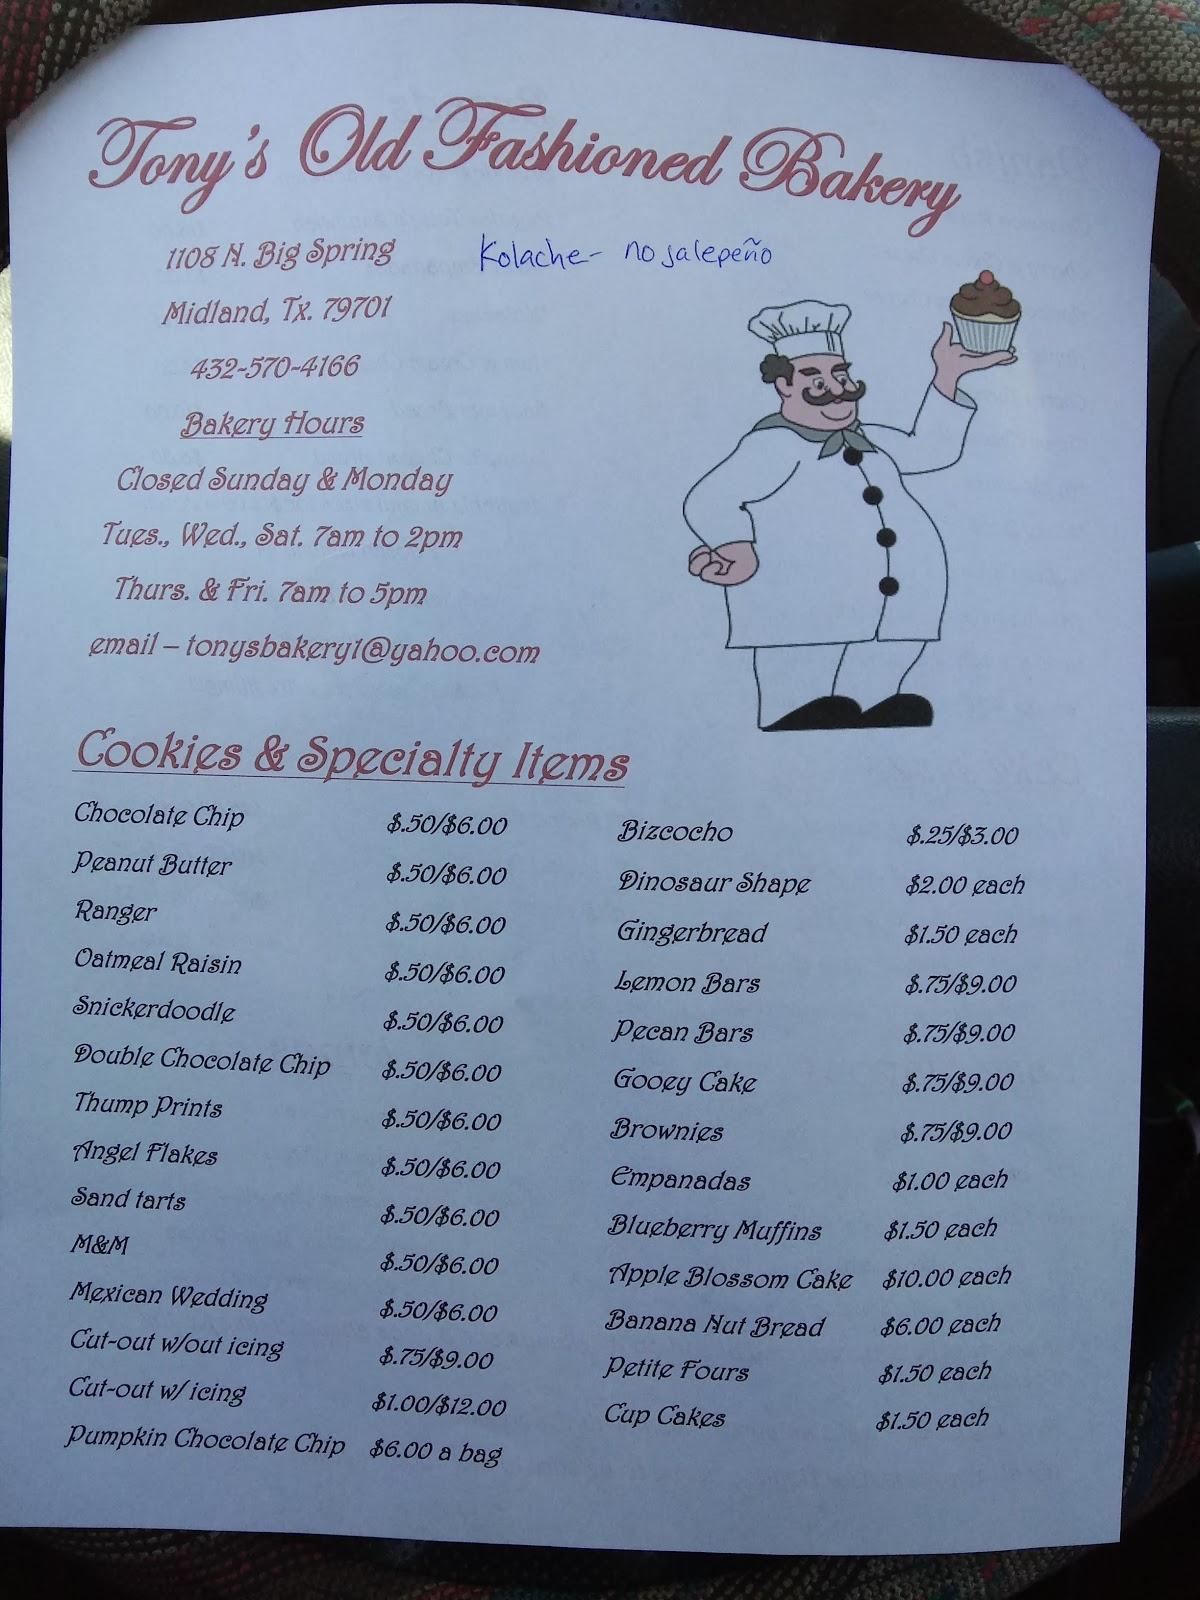 Tony's Old Fashioned Bakery
1108 N. Big Spring
Kolache- no jalepeño
Midland, Tx. 79701
432-570-4166
Bakery Hours
Closed Sunday & Monday
Tues., Wed., Sat. 7am to 2pm
Thurs. & Fri. 7am to 5pm
email – tonysbakery1@yahoo.com
Cookies & Specialty Items
Chocolate Chip $.50/$6.00
Peanut Butter $.50/$6.00
Ranger $.50/$6.00
Oatmeal Raisin $.50/$6.00
Snickerdoodle $.50/$6.00
Double Chocolate Chip $.50/$6.00
Thump Prints $.50/$6.00
Angel Flakes $.50/$6.00
Sand tarts $.50/$6.00
M&M $.50/$6.00
Mexican Wedding $.50/$6.00
Cut-out w/out icing $.75/$9.00
Cut-out w/ icing $1.00/$12.00
Pumpkin Chocolate Chip $6.00 a bag
Bizcocho $.25/$3.00
Dinosaur Shape $2.00 each
Gingerbread $1.50 each
Lemon Bars $.75/$9.00
Pecan Bars $.75/$9.00
Gooey Cake $.75/$9.00
Brownies $.75/$9.00
Empanadas $1.00 each
Blueberry Muffins $1.50 each
Apple Blossom Cake $10.00 each
Banana Nut Bread $6.00 each
Petite Fours $1.50 each
Cup Cakes $1.50 each